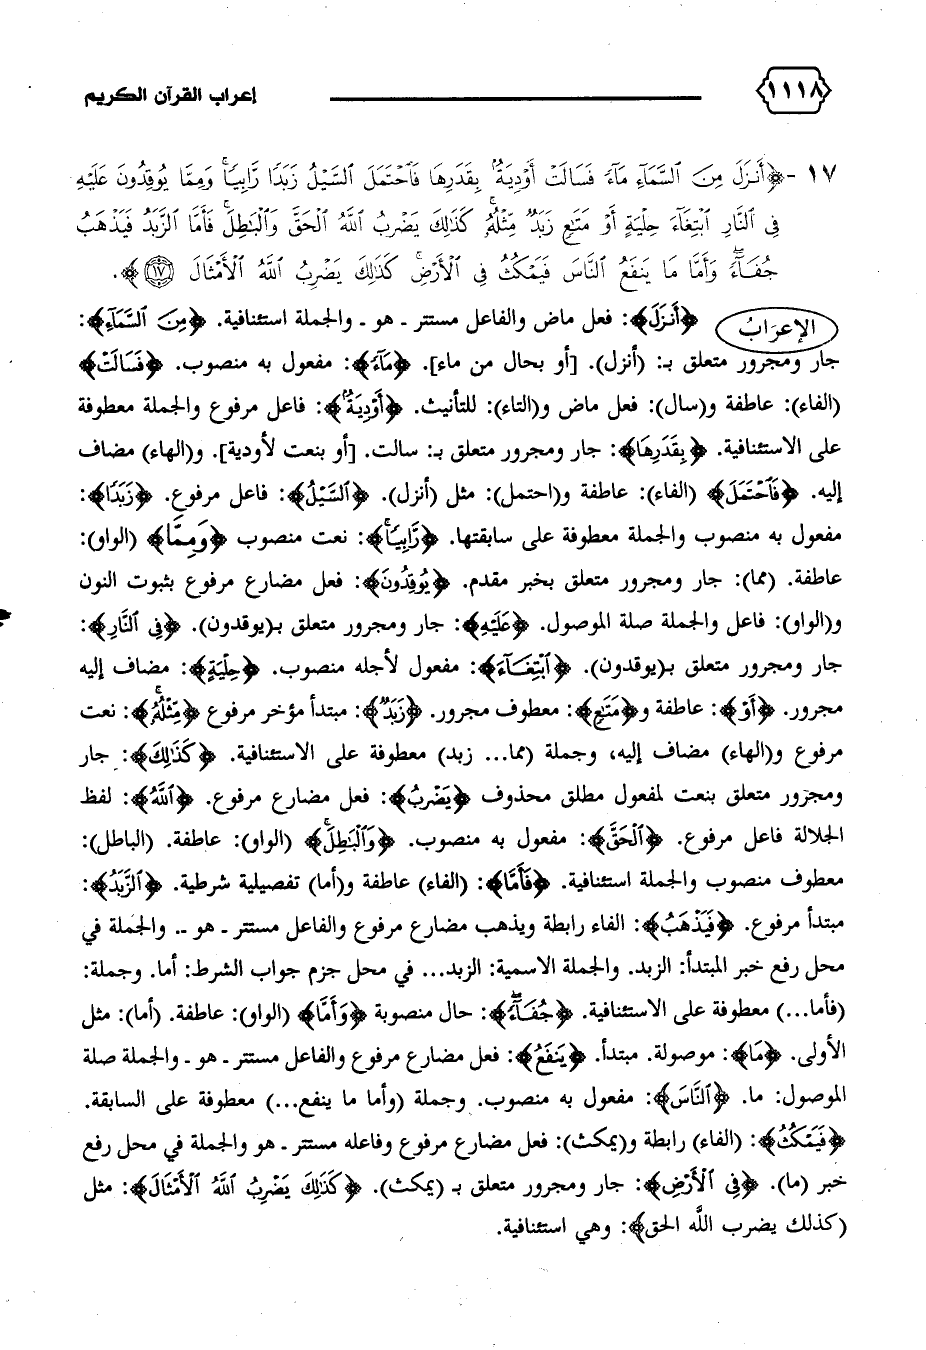 ١١١٨ إعراب القرآن الكريم
١٧ - ﴿أَنزَلَ مِنَ ٱلسَّمَآءِ مَآءً فَسَالَتْ أَوْدِيَةٌۢ بِقَدَرِهَا فَٱحْتَمَلَ ٱلسَّيْلُ زَبَدًا رَّابِيًاۚ وَمِمَّا يُوقِدُونَ عَلَيْهِ
فِى ٱلنَّارِ ٱبْتِغَآءَ حِلْيَةٍ أَوْ مَتَٰعٍ زَبَدٌ مِّثْلُهُۥۚ كَذَٰلِكَ يَضْرِبُ ٱللَّهُ ٱلْحَقَّ وَٱلْبَٰطِلَۚ فَأَمَّا ٱلزَّبَدُ فَيَذْهَبُ
جُفَآءًۖ وَأَمَّا مَا يَنفَعُ ٱلنَّاسَ فَيَمْكُثُ فِى ٱلْأَرْضِۚ كَذَٰلِكَ يَضْرِبُ ٱللَّهُ ٱلْأَمْثَالَ ١٧﴾.
الإعرَابُ ﴿أَنزَلَ﴾: فعل ماض والفاعل مستتر ـ هو ـ والجملة استئنافية. ﴿مِنَ ٱلسَّمَآءِ﴾:
جار ومجرور متعلق بـ: (أنزل). [أو بحال من ماء]. ﴿مَآءً﴾: مفعول به منصوب. ﴿فَسَالَتْ﴾
(الفاء): عاطفة و(سال): فعل ماض و(التاء): للتأنيث. ﴿أَوْدِيَةٌۢ﴾: فاعل مرفوع والجملة معطوفة
على الاستئنافية. ﴿بِقَدَرِهَا﴾: جار ومجرور متعلق بـ: سالت. [أو بنعت لأودية]. و(الهاء) مضاف
إليه. ﴿فَٱحْتَمَلَ﴾ (الفاء): عاطفة و(احتمل): مثل (أنزل). ﴿ٱلسَّيْلُ﴾: فاعل مرفوع. ﴿زَبَدًا﴾:
مفعول به منصوب والجملة معطوفة على سابقتها. ﴿رَّابِيًاۚ﴾: نعت منصوب ﴿وَمِمَّا﴾ (الواو):
عاطفة. (مما): جار ومجرور متعلق بخبر مقدم. ﴿يُوقِدُونَ﴾: فعل مضارع مرفوع بثبوت النون
و(الواو): فاعل والجملة صلة الموصول. ﴿عَلَيْهِ﴾: جار ومجرور متعلق بـ(يوقدون). ﴿فِى ٱلنَّارِ﴾:
جار ومجرور متعلق بـ(يوقدون). ﴿ٱبْتِغَآءَ﴾: مفعول لأجله منصوب. ﴿حِلْيَةٍ﴾: مضاف إليه
مجرور. ﴿أَوْ﴾: عاطفة و﴿مَتَٰعٍ﴾: معطوف مجرور. ﴿زَبَدٌ﴾: مبتدأ مؤخر مرفوع ﴿مِّثْلُهُۥۚ﴾: نعت
مرفوع و(الهاء) مضاف إليه، وجملة (مما... زبد) معطوفة على الاستئنافية. ﴿كَذَٰلِكَ﴾: جار
ومجرور متعلق بنعت لمفعول مطلق محذوف ﴿يَضْرِبُ﴾: فعل مضارع مرفوع. ﴿ٱللَّهُ﴾: لفظ
الجلالة فاعل مرفوع. ﴿ٱلْحَقَّ﴾: مفعول به منصوب. ﴿وَٱلْبَٰطِلَۚ﴾ (الواو): عاطفة. (الباطل):
معطوف منصوب والجملة استئنافية. ﴿فَأَمَّا﴾: (الفاء) عاطفة و(أما) تفصيلية شرطية. ﴿ٱلزَّبَدُ﴾:
مبتدأ مرفوع. ﴿فَيَذْهَبُ﴾: الفاء رابطة ويذهب مضارع مرفوع والفاعل مستتر ـ هو ـ. والجملة في
محل رفع خبر المبتدأ: الزبد. والجملة الاسمية: الزبد... في محل جزم جواب الشرط: أما. وجملة:
(فأما...) معطوفة على الاستئنافية. ﴿جُفَآءًۖ﴾: حال منصوبة ﴿وَأَمَّا﴾ (الواو): عاطفة. (أما): مثل
الأولى. ﴿مَا﴾: موصولة. مبتدأ. ﴿يَنفَعُ﴾: فعل مضارع مرفوع والفاعل مستتر ـ هو ـ والجملة صلة
الموصول: ما. ﴿ٱلنَّاسَ﴾: مفعول به منصوب. وجملة (وأما ما ينفع...) معطوفة على السابقة.
﴿فَيَمْكُثُ﴾: (الفاء) رابطة و(يمكث): فعل مضارع مرفوع وفاعله مستتر ـ هو والجملة في محل رفع
خبر (ما). ﴿فِى ٱلْأَرْضِ﴾: جار ومجرور متعلق بـ (يمكث). ﴿كَذَٰلِكَ يَضْرِبُ ٱللَّهُ ٱلْأَمْثَالَ﴾: مثل
(كذلك يضرب اللَّه الحق﴾: وهي استئنافية.